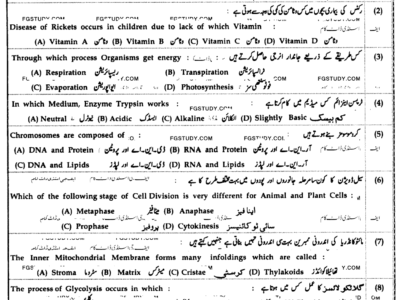 رکٹس کی بیماری بچوں میں کس وٹامن کی کمی کی وجہ سے ہوتی ہے : (2)
FGSTUDY.COM FGSTUDY.COM FGSTUDY.COM
Disease of Rickets occurs in children due to lack of which Vitamin :
(A) Vitamin A وٹامن (B) Vitamin B وٹامن (C) Vitamin C وٹامن (D) Vitamin D وٹامن
کس طریقے کے ذریعے جاندار انرجی حاصل کرتے ہیں (3)
Through which process Organisms get energy :
(A) Respiration ریسپائریشن (B) Transpiration ٹرانسپائریشن
FGSTUDY.COM
(C) Evaporation ایواپوریشن (D) Photosynthesis فوٹوسنتھی سز
اینزائم ٹرپسن کس میڈیم میں کام کرتا ہے : (4)
In which Medium, Enzyme Trypsin works :
FGSTUDY.COM
(A) Neutral نیوٹرل (B) Acidic ایسڈک (C) Alkaline الکلائن (D) Slightly Basic کم بیسک
کروموسومز بنے ہوتے ہیں : (5)
Chromosomes are composed of : FGSTUDY.COM FGSTUDY.COM
(A) DNA and Protein ڈی۔این۔اے اور پروٹین (B) RNA and Protein آر۔این۔اے اور پروٹین
(C) DNA and Lipids ڈی۔این۔اے اور لپڈز (D) RNA and Lipids آر۔این۔اے اور لپڈز
سیل ڈویژن کا کون سا مرحلہ جانوروں اور پودوں میں بہت مختلف طرح کا ہے : (6)
Which of the following stage of Cell Division is very different for Animal and Plant Cells :
(A) Metaphase میٹافیز (B) Anaphase اینافیز
(C) Prophase پروفیز (D) Cytokinesis سائٹوکائنیسز
مائٹوکانڈریا کی اندرونی ممبرین بہت سی اندرونی تہیں بناتی ہے جنہیں کہتے ہیں : (7)
The Inner Mitochondrial Membrane forms many infoldings which are called :
(A) Stroma سٹروما (B) Matrix میٹرکس (C) Cristae کرسٹی (D) Thylakoids تھائیلاکوائڈز
گلائیکولائسز کا عمل کس میں ہوتا ہے : (8)
The process of Glycolysis occurs in which :